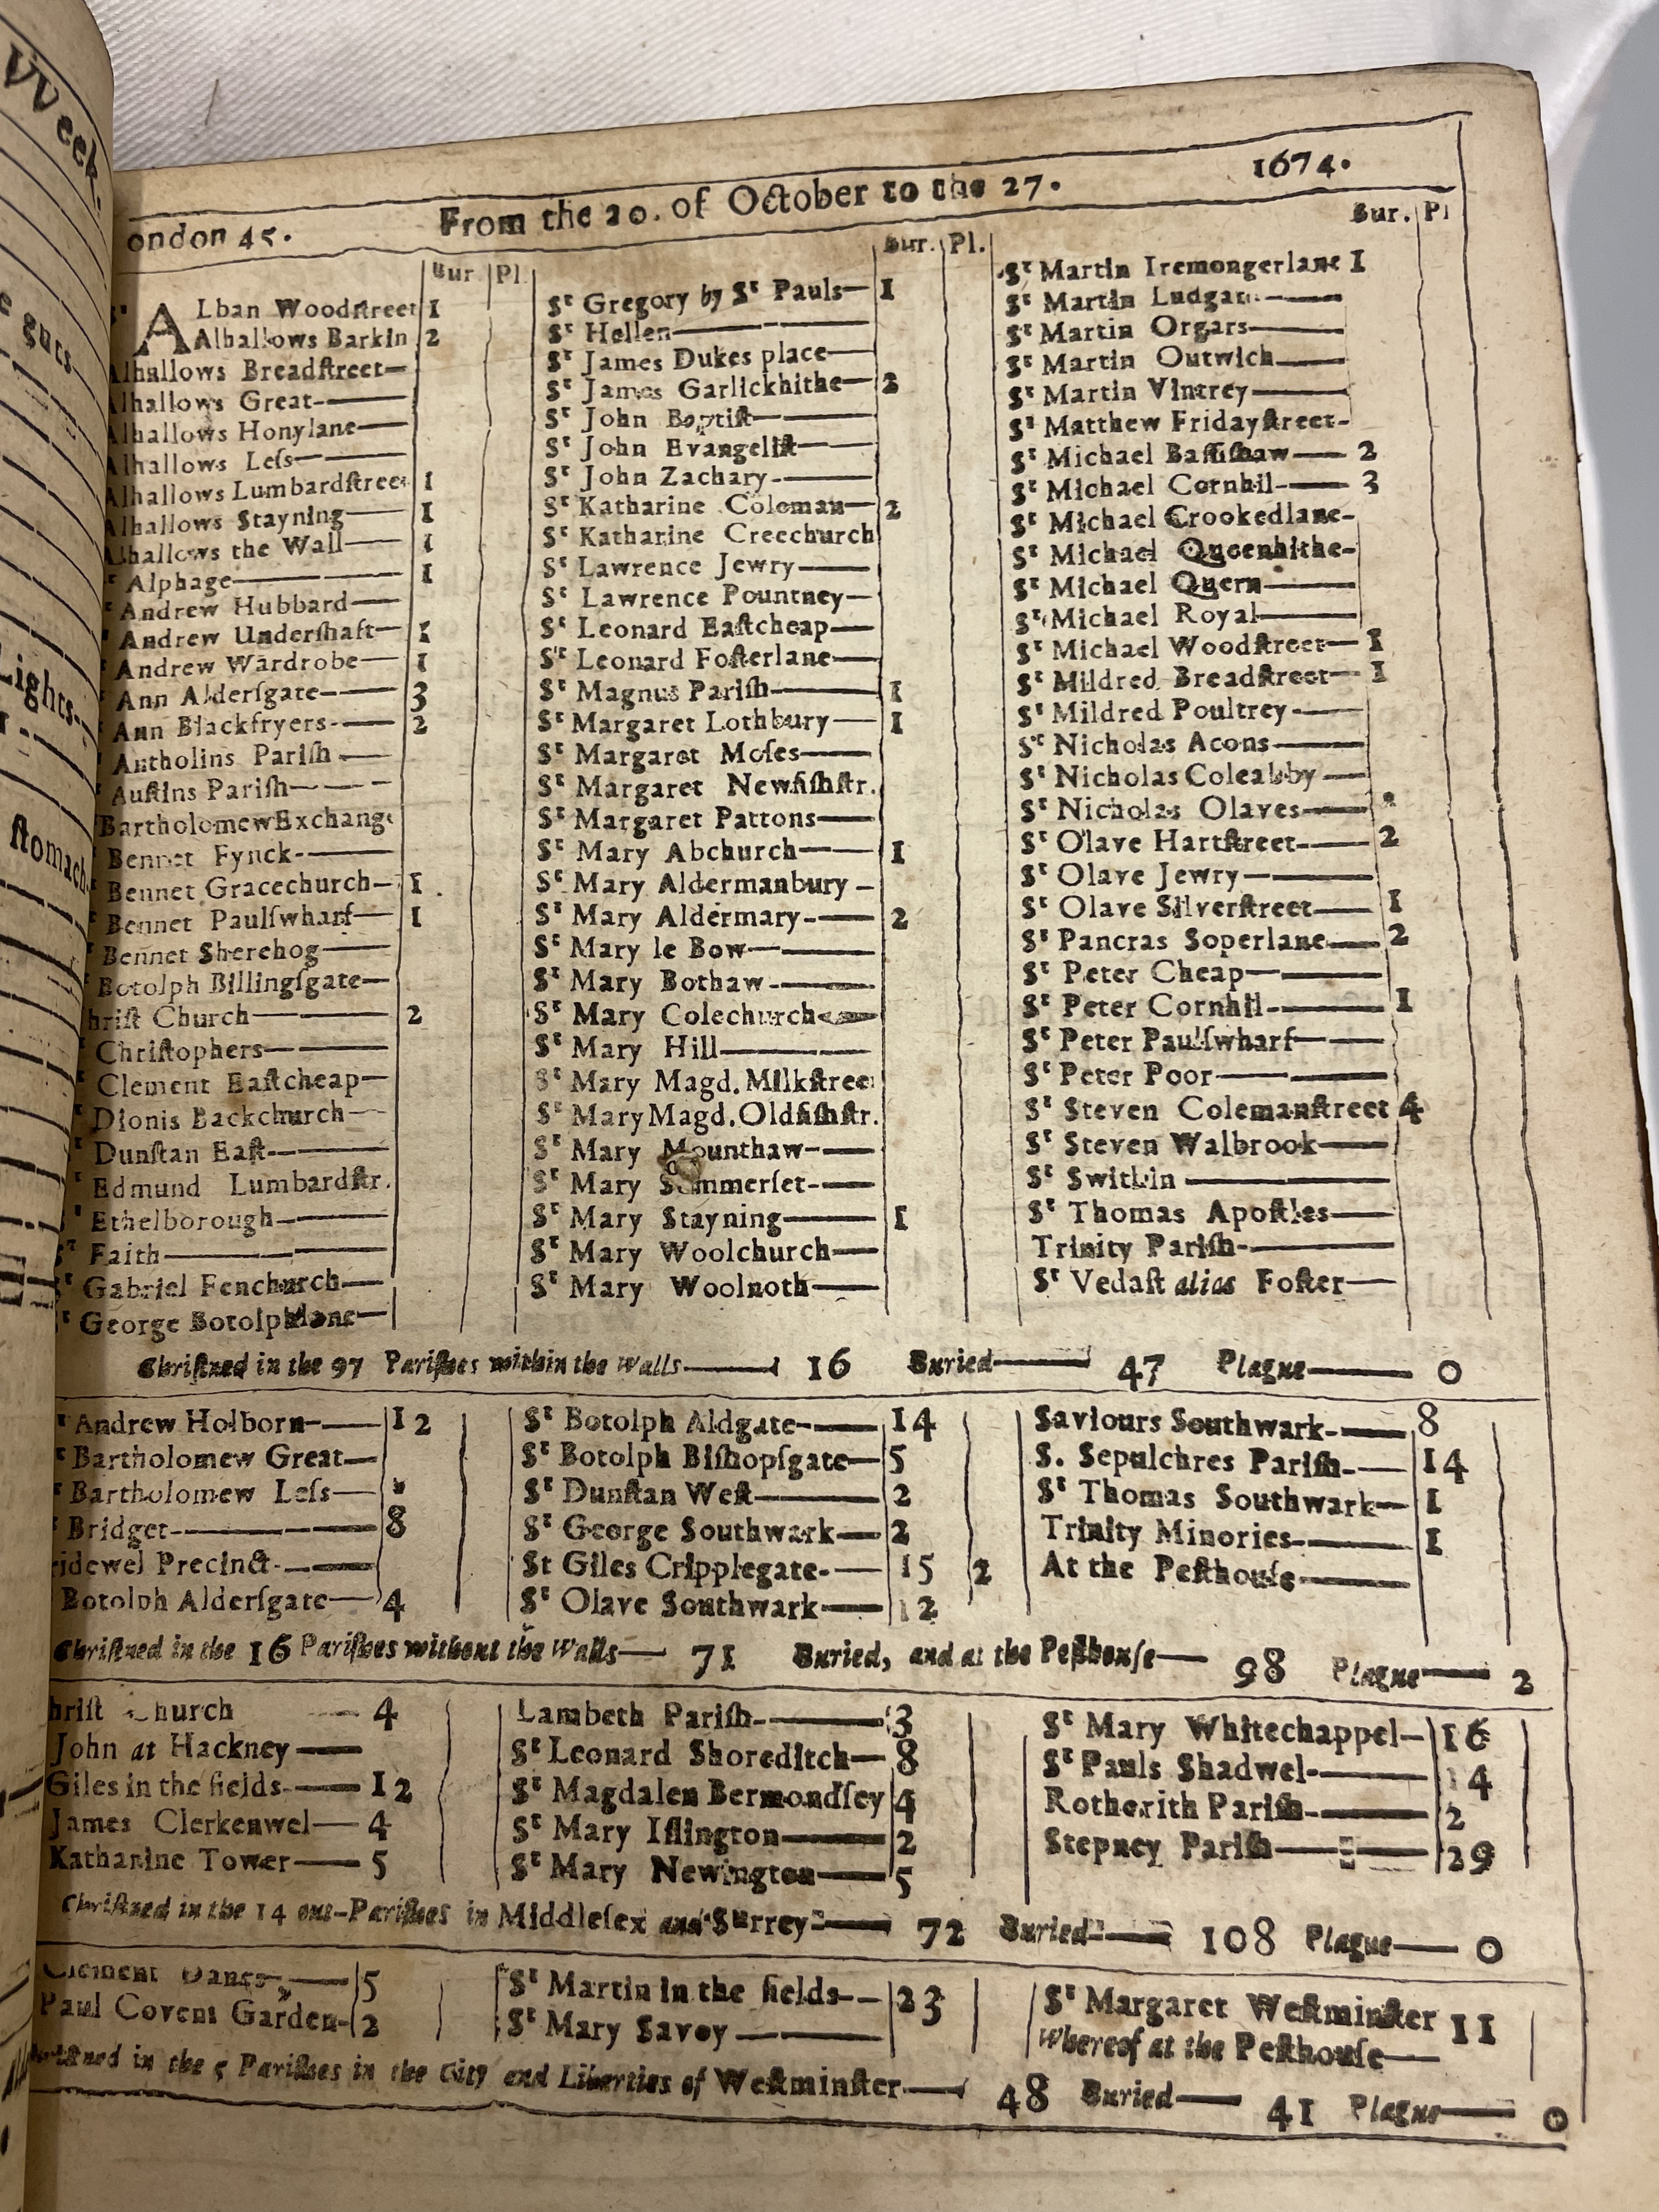 VVeek.
guts
Lights
stomach
ondon 45. From the 20. of October to the 27. 1674.
Bur Pl
ALban Woodſtreet 1
Alhallows Barkin 2
Alhallows Breadſtreet
Alhallows Great
Alhallows Honylane
Alhallows Leſs
Alhallows Lumbardſtreet 1
Alhallows Stayning 1
Alhallows the Wall 1
Alphage 1
Andrew Hubbard
Andrew Underſhaft 1
Andrew Wardrobe 1
Ann Alderſgate 3
Ann Blackfryers 2
Antholins Pariſh
Auſtins Pariſh
Bartholomew Exchange
Bennet Fynck
Bennet Gracechurch 1
Bennet Paulſwharf 1
Bennet Sherehog
Botolph Billingſgate
hriſt Church 2
Chriſtophers
Clement Eaſtcheap
Dionis Backchurch
Dunſtan Eaſt
Edmund Lumbardſtr.
Ethelborough
Sᵗ Faith
Sᵗ Gabriel Fenchurch
George Botolphlane
Bur. Pl.
Sᵗ Gregory by Sᵗ Pauls 1
Sᵗ Hellen
Sᵗ James Dukes place
Sᵗ James Garlickhithe 2
Sᵗ John Baptiſt
Sᵗ John Evangeliſt
Sᵗ John Zachary
Sᵗ Katharine Coleman 2
Sᵗ Katharine Creechurch
Sᵗ Lawrence Jewry
Sᵗ Lawrence Pountney
Sᵗ Leonard Eaſtcheap
Sᵗ Leonard Foſterlane
Sᵗ Magnus Pariſh 1
Sᵗ Margaret Lothbury 1
Sᵗ Margaret Moſes
Sᵗ Margaret Newfiſhſtr.
Sᵗ Margaret Pattons
Sᵗ Mary Abchurch 1
Sᵗ Mary Aldermanbury
Sᵗ Mary Aldermary 2
Sᵗ Mary le Bow
Sᵗ Mary Bothaw
Sᵗ Mary Colechurch
Sᵗ Mary Hill
Sᵗ Mary Magd. Milkſtree
Sᵗ Mary Magd. Oldfiſhſtr.
Sᵗ Mary Mounthaw
Sᵗ Mary Sommerſet
Sᵗ Mary Stayning 1
Sᵗ Mary Woolchurch
Sᵗ Mary Woolnoth
Bur. Pl
Sᵗ Martin Iremongerlane 1
Sᵗ Martin Ludgat
Sᵗ Martin Orgars
Sᵗ Martin Outwich
Sᵗ Martin Vintrey
Sᵗ Matthew Fridayſtreet
Sᵗ Michael Baſſiſhaw 2
Sᵗ Michael Cornhil 3
Sᵗ Michael Crookedlane
Sᵗ Michael Queenhithe
Sᵗ Michael Quern
Sᵗ Michael Royal
Sᵗ Michael Woodſtreet 1
Sᵗ Mildred Breadſtreet 1
Sᵗ Mildred Poultrey
Sᵗ Nicholas Acons
Sᵗ Nicholas Coleabby
Sᵗ Nicholas Olaves
Sᵗ Olave Hartſtreet 2
Sᵗ Olave Jewry
Sᵗ Olave Silverſtreet 1
Sᵗ Pancras Soperlane 2
Sᵗ Peter Cheap
Sᵗ Peter Cornhil 1
Sᵗ Peter Paulſwharf
Sᵗ Peter Poor
Sᵗ Steven Colemanſtreet 4
Sᵗ Steven Walbrook
Sᵗ Swithin
Sᵗ Thomas Apoſtles
Trinity Pariſh
Sᵗ Vedaſt alias Foſter
Chriſtned in the 97 Pariſhes within the Walls 16 Buried 47 Plague 0
Andrew Holborn 12
Bartholomew Great
Bartholomew Leſs
Bridget 8
ridewel Precinct
Botolph Alderſgate 4
Sᵗ Botolph Aldgate 14
Sᵗ Botolph Biſhopſgate 5
Sᵗ Dunſtan Weſt 2
Sᵗ George Southwark 2
St Giles Cripplegate 15 2
Sᵗ Olave Southwark 12
Saviours Southwark 8
S. Sepulchres Pariſh 14
Sᵗ Thomas Southwark 1
Trinity Minories 1
At the Peſthouſe
Chriſtned in the 16 Pariſhes without the Walls 71 Buried, and at the Peſthouſe 98 Plague 2
hriſt Church 4
John at Hackney
Giles in the fields 12
James Clerkenwel 4
Katharine Tower 5
Lambeth Pariſh 3
Sᵗ Leonard Shoreditch 8
Sᵗ Magdalen Bermondſey 4
Sᵗ Mary Iſlington 2
Sᵗ Mary Newington 5
Sᵗ Mary Whitechappel 16
Sᵗ Pauls Shadwel 14
Rotherith Pariſh 2
Stepney Pariſh 29
Chriſtned in the 14 out-Pariſhes in Middleſex and Surrey 72 Buried 108 Plague 0
Clement Danes 5
Paul Covent Garden 2
Sᵗ Martin in the fields 23
Sᵗ Mary Savoy
Sᵗ Margaret Weſtminſter 11
Whereof at the Peſthouſe
Chriſtned in the 5 Pariſhes in the City and Liberties of Weſtminſter 48 Buried 41 Plague 0